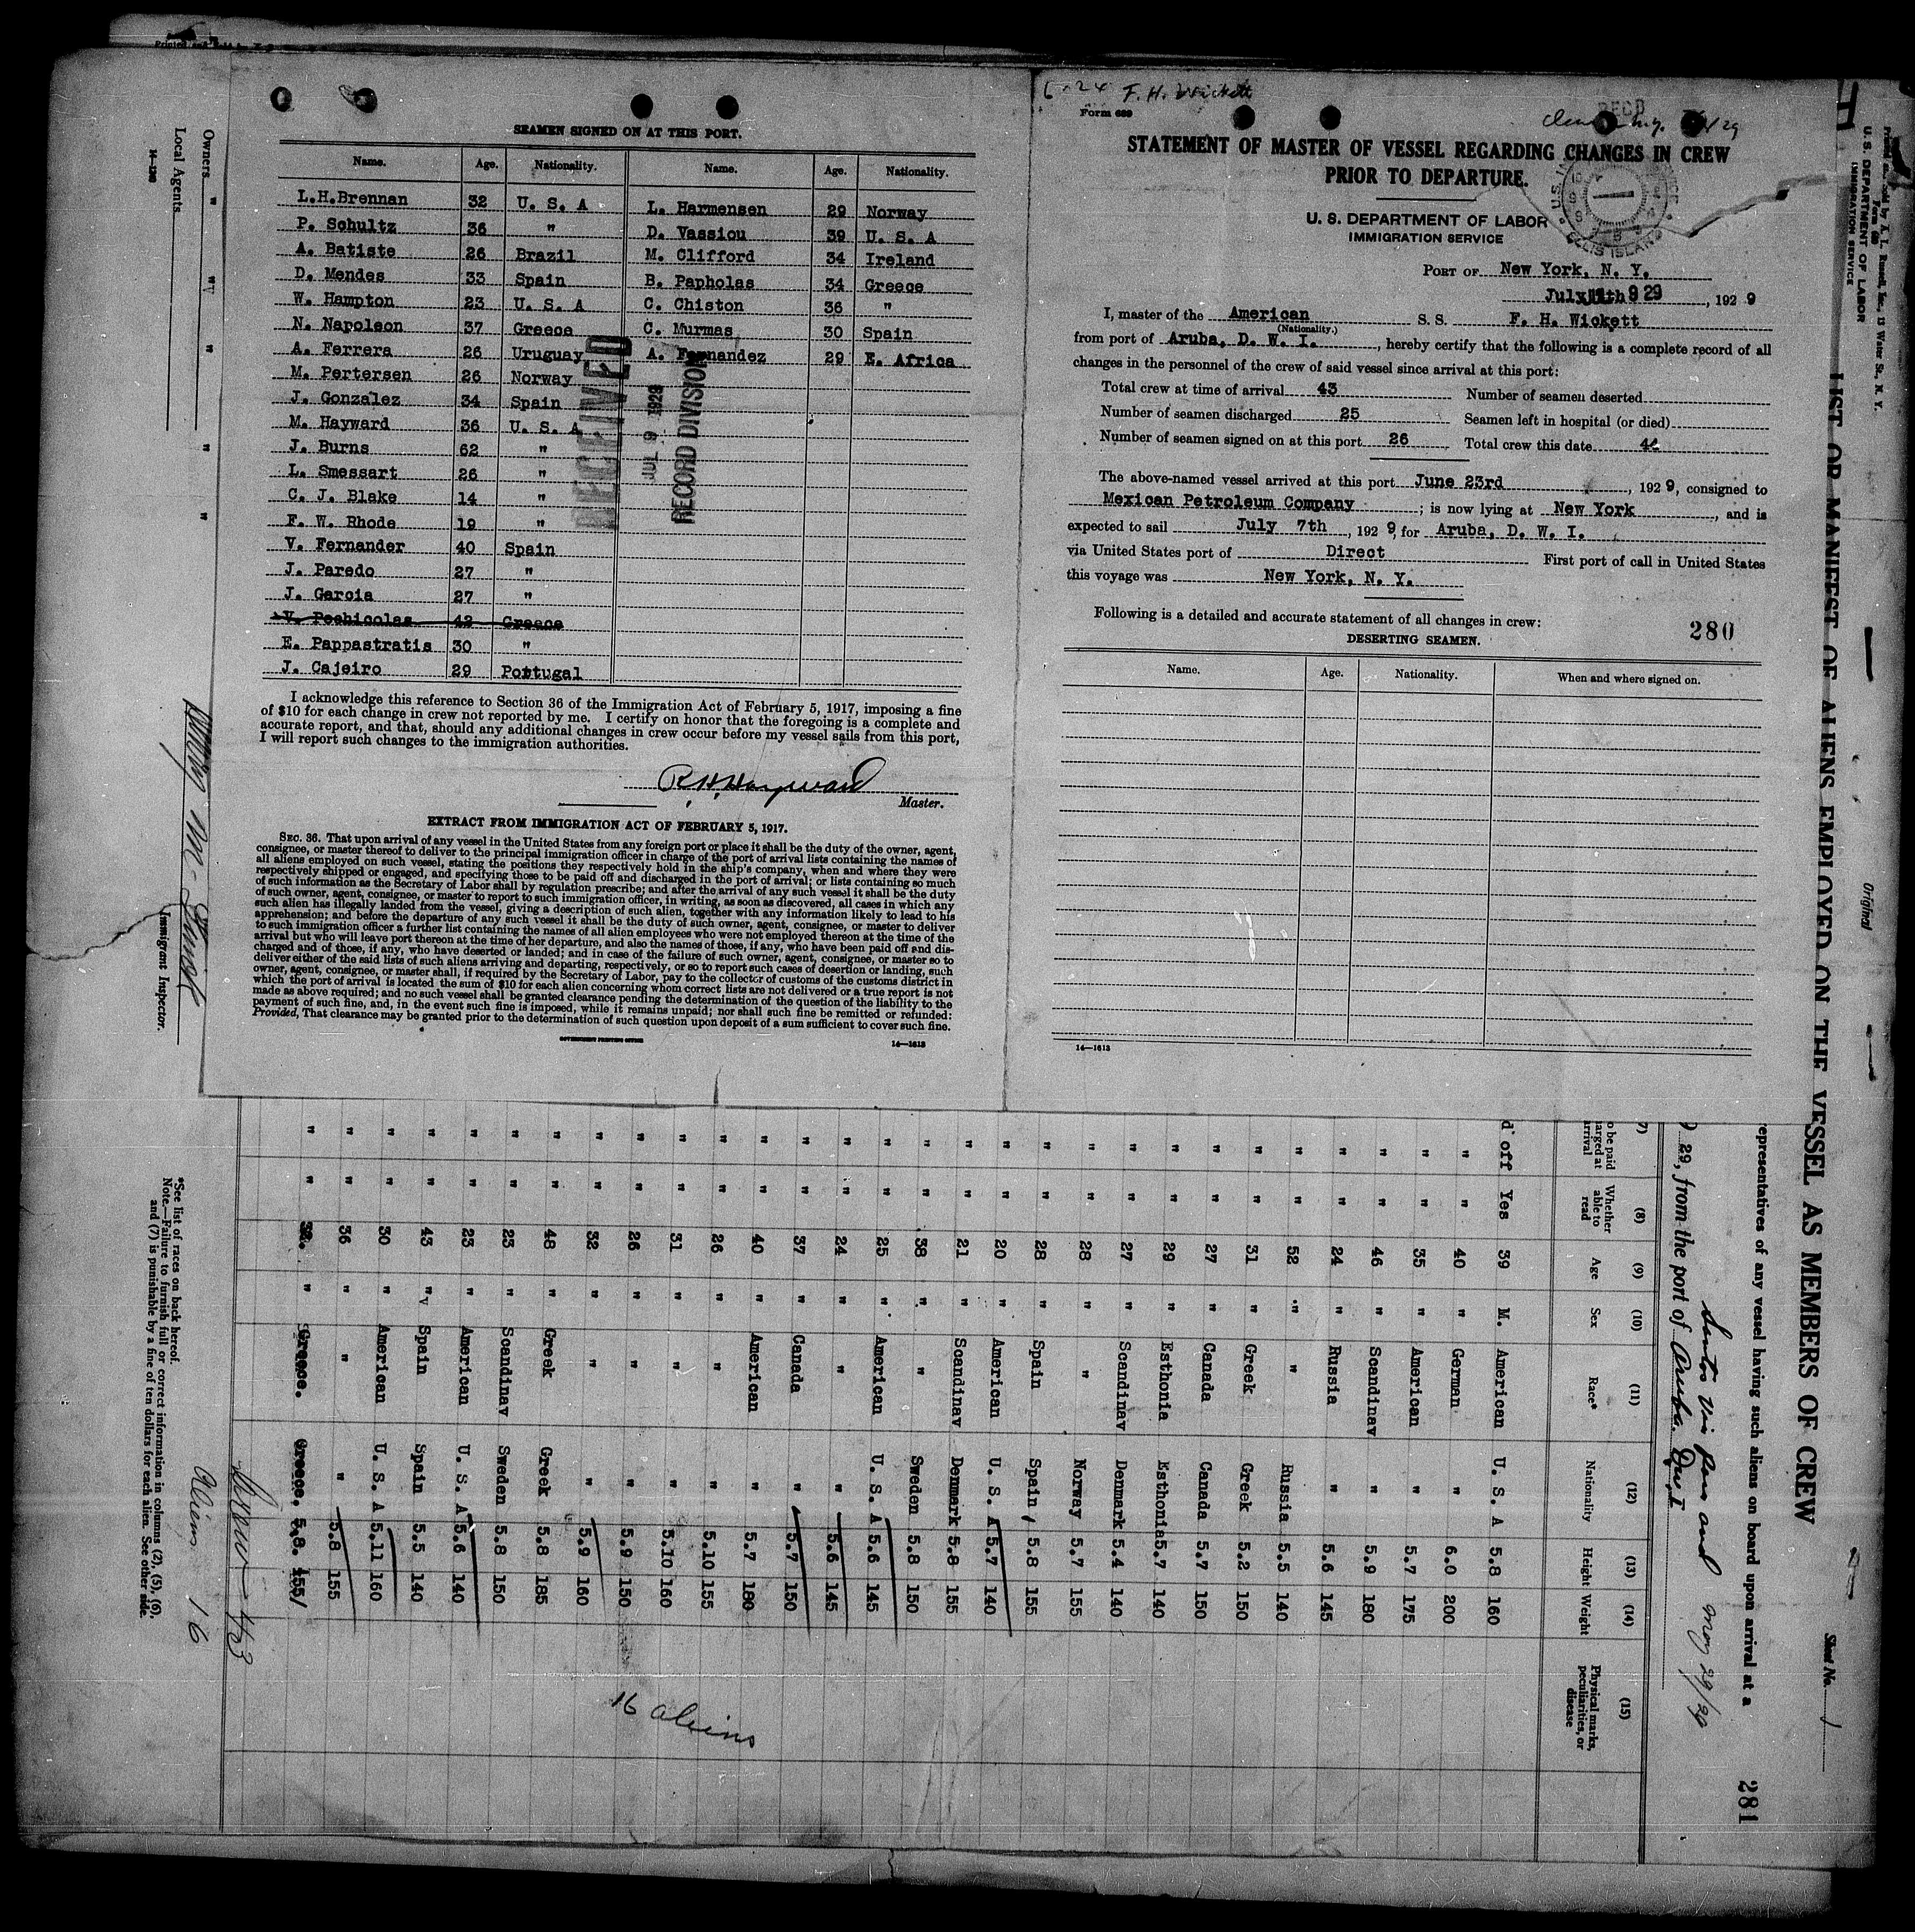 SEAMEN SIGNED ON AT THIS PORT.
Name. Age. Nationality. Name. Age. Nationality.
L.H.Brennan 32 U. S. A L. Harmensen 29 Norway
P. Schultz 36 " D. Vassiou 39 U. S. A
A. Batiste 26 Brazil M. Clifford 34 Ireland
D. Mendes 33 Spain B. Papholas 34 Greece
W. Hampton 23 U. S. A C. Chiston 36 "
N. Napoleon 37 Greece C. Murmas 30 Spain
A. Ferrera 26 Uruguay A. Fernandez 29 E. Africa
M. Pertersen 26 Norway
J. Gonzalez 34 Spain
M. Hayward 36 U. S. A
J. Burns 62 "
L. Smessart 26 "
C. J. Blake 14 "
F. W. Rhode 19 "
V. Fernander 40 Spain
J. Paredo 27 "
J. Garcia 27 "
V. Pechicolas 42 Greece
E. Pappastratis 30 "
J. Cajeiro 29 Portugal
RECEIVED
RECORD DIVISION
I acknowledge this reference to Section 36 of the Immigration Act of February 5, 1917, imposing a fine
of $10 for each change in crew not reported by me. I certify on honor that the foregoing is a complete and
accurate report, and that, should any additional changes in crew occur before my vessel sails from this port,
I will report such changes to the immigration authorities.
R. H. Hayward
Master.
EXTRACT FROM IMMIGRATION ACT OF FEBRUARY 5, 1917.
SEC. 36. That upon arrival of any vessel in the United States from any foreign port or place it shall be the duty of the owner, agent,
consignee, or master thereof to deliver to the principal immigration officer in charge of the port of arrival lists containing the names of
all aliens employed on such vessel, stating the positions they respectively hold in the ship's company, when and where they were
respectively shipped or engaged, and specifying those to be paid off and discharged in the port of arrival; or lists containing so much
of such information as the Secretary of Labor shall by regulation prescribe; and after the arrival of any such vessel it shall be the duty
of such owner, agent, consignee, or master to report to such immigration officer, in writing, as soon as discovered, all cases in which any
such alien has illegally landed from the vessel, giving a description of such alien, together with any information likely to lead to his
apprehension; and before the departure of any such vessel it shall be the duty of such owner, agent, consignee, or master to deliver
to such immigration officer a further list containing the names of all alien employees who were not employed thereon at the time of the
arrival but who will leave port thereon at the time of her departure, and also the names of those, if any, who have been paid off and dis-
charged and of those, if any, who have deserted or landed; and in case of the failure of such owner, agent, consignee, or master so to
deliver either of the said lists of such aliens arriving and departing, respectively, or so to report such cases of desertion or landing, such
owner, agent, consignee, or master shall, if required by the Secretary of Labor, pay to the collector of customs of the customs district in
which the port of arrival is located the sum of $10 for each alien concerning whom correct lists are not delivered or a true report is not
made as above required; and no such vessel shall be granted clearance pending the determination of the question of the liability to the
payment of such fine, and, in the event such fine is imposed, while it remains unpaid; nor shall such fine be remitted or refunded:
Provided, That clearance may be granted prior to the determination of such question upon deposit of a sum sufficient to cover such fine.
GOVERNMENT PRINTING OFFICE
14—1613
F. H. Wickett
Form 689
STATEMENT OF MASTER OF VESSEL REGARDING CHANGES IN CREW
PRIOR TO DEPARTURE.
U. S. DEPARTMENT OF LABOR
IMMIGRATION SERVICE
ELLIS ISLAND
PORT OF New York, N. Y.
July 9 29, 1929
I, master of the American S. S. F. H. Wickett
(Nationality.)
from port of Aruba, D. W. I., hereby certify that the following is a complete record of all
changes in the personnel of the crew of said vessel since arrival at this port:
Total crew at time of arrival 43 Number of seamen deserted
Number of seamen discharged 25 Seamen left in hospital (or died)
Number of seamen signed on at this port 26 Total crew this date
The above-named vessel arrived at this port June 23rd, 1929, consigned to
Mexican Petroleum Company; is now lying at New York, and is
expected to sail July 7th, 1929, for Aruba, D. W. I.
via United States port of Direct First port of call in United States
this voyage was New York, N. Y.
Following is a detailed and accurate statement of all changes in crew:
280
DESERTING SEAMEN.
Name. Age. Nationality. When and where signed on.
14—1613
Original
U. S. DEPARTMENT OF LABOR
IMMIGRATION SERVICE
LIST OR MANIFEST OF ALIENS EMPLOYED ON THE VESSEL AS MEMBERS OF CREW
Sheet No.
281
epresentatives of any vessel having such aliens on board upon arrival at a
29, from the port of Aruba. D.W.I
(8) (9) (10) (11) (12) (13) (14) (15)
Whether able to read Age Sex Race* Nationality Height Weight Physical marks, peculiarities, or disease
d off Yes 39 M. American U. S. A 5.8 160
" " 40 " German " 6.0 200
" " 35 " American " 5.7 175
" " 46 " Scandinav " 5.9 180
" " 24 " Russia " 5.6 145
" " 52 " " Russia 5.5 140
" " 31 " Greek Greek 5.2 150
" " 27 " Canada Canada 5.7 150
" " 29 " Esthonia Esthonia 5.7 140
" " 27 " Scandinav Denmark 5.4 140
" " 28 " " Norway 5.7 155
" " 28 " Spain Spain 5.8 155
" " 20 " American U. S. A 5.7 140
" " 21 " Scandinav Denmark 5.8 155
" " 38 " " Sweden 5.8 150
" " 25 " American U. S. A 5.6 145
" " 24 " " " 5.6 145
" " 37 " Canada " 5.7 150
" " 40 " American " 5.7 180
" " 26 " " " 5.10 155
" " 31 " " " 5.10 160
" " 26 " " " 5.9 150
" " 32 " " " 5.9 160
" " 48 " Greek Greek 5.8 185
" " 23 " Scandinav Sweden 5.8 150
" " 23 " American U. S. A 5.6 140
" " 43 " Spain Spain 5.5 140
" " 30 " American U. S. A 5.11 160
" " 36 " " " 5.8 155
" " 32. " Greece. Greece. 5.8. 155
16 aliens
Crew 43
Aliens 16
*See list of races on back hereof.
Note.—Failure to furnish full or correct information in columns (2), (5), (6),
and (7) is punishable by a fine of ten dollars for each alien. See other side.
Immigrant Inspector.
Owners
Local Agents
14—1240